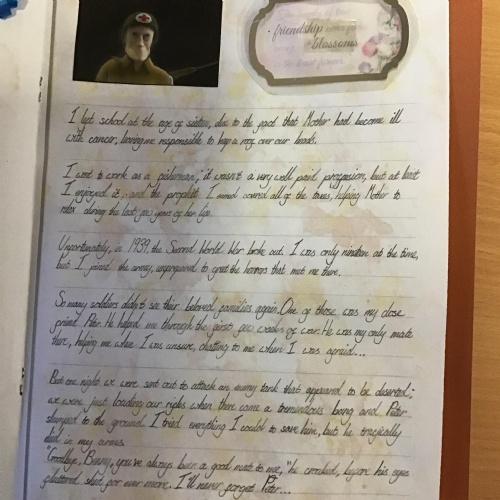 friendship
blossoms
I left school at the age of sixteen, due to the fact that Mother had become ill
with cancer, leaving me responsible to keep a roof over our heads.
I went to work as a fisherman; it wasn't a very well paid progression, but at least
I enjoyed it, and the prophets I earned covered all of the taxes, helping Mother to
relax during the last few years of her life.
Unfortunately, in 1939, the Second World War broke out. I was only nineteen at the time,
but I joined the army, unprepared to greet the horrors that met me there.
So many soldiers didn't see their beloved families again. One of those was my close
friend Peter. He helped me through the first few weeks of war. He was my only mate
there, helping me when I was unsure, chatting to me when I was afraid...
But one night we were sent out to attack an enemy tank that appeared to be deserted;
we were just loading our rifles when there came a tremendous bang and Peter
slumped to the ground. I tried everything I could to save him, but he tragically
died in my arms.
"Goodbye, Benny, you've always been a good mate to me," he croaked, before his eyes
fluttered shut for ever more. I'll never forget Peter...